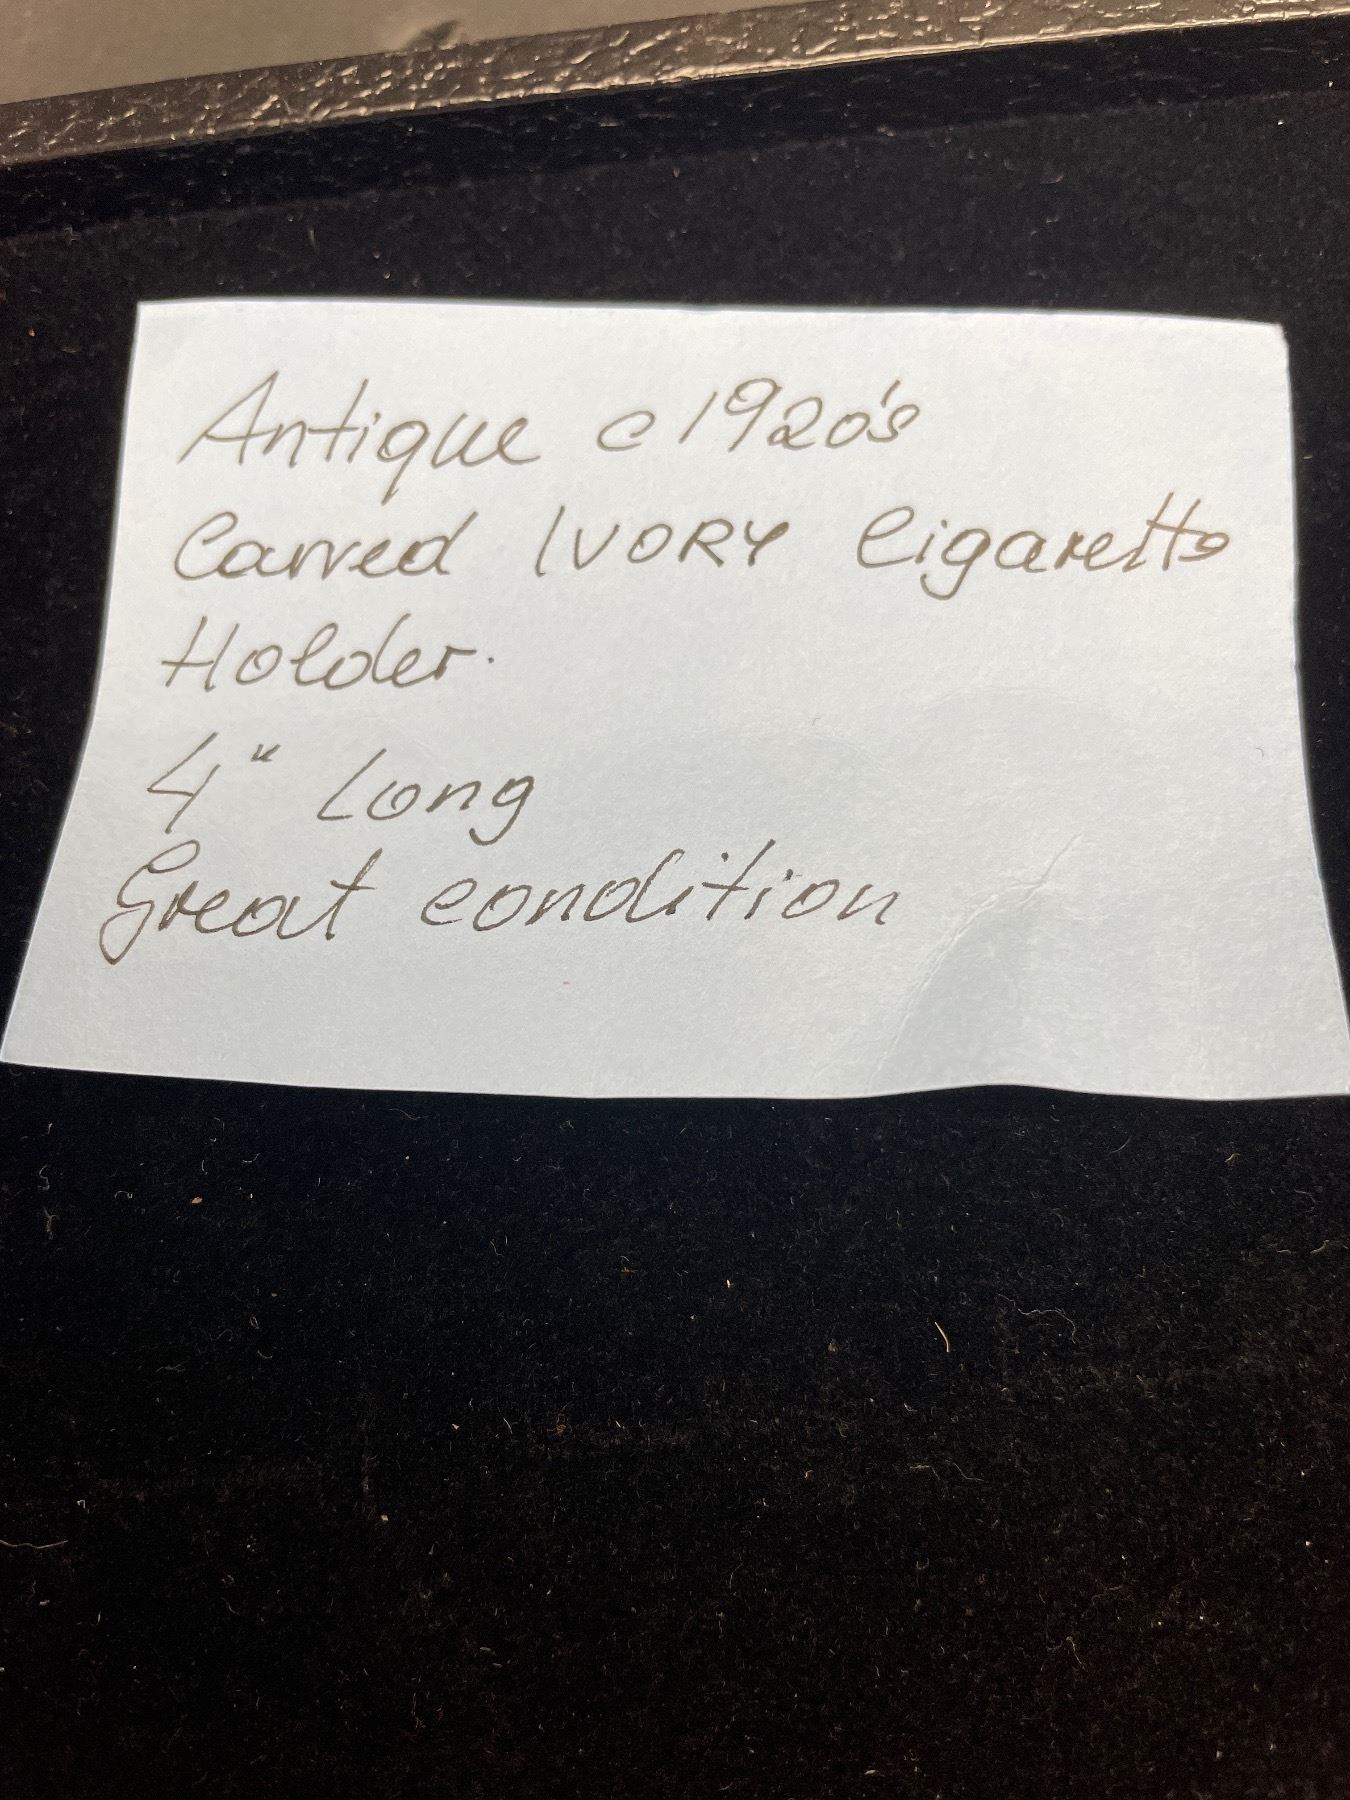 Antique c1920's
Carved IVORY Cigarette
Holder.
4" Long
Great condition